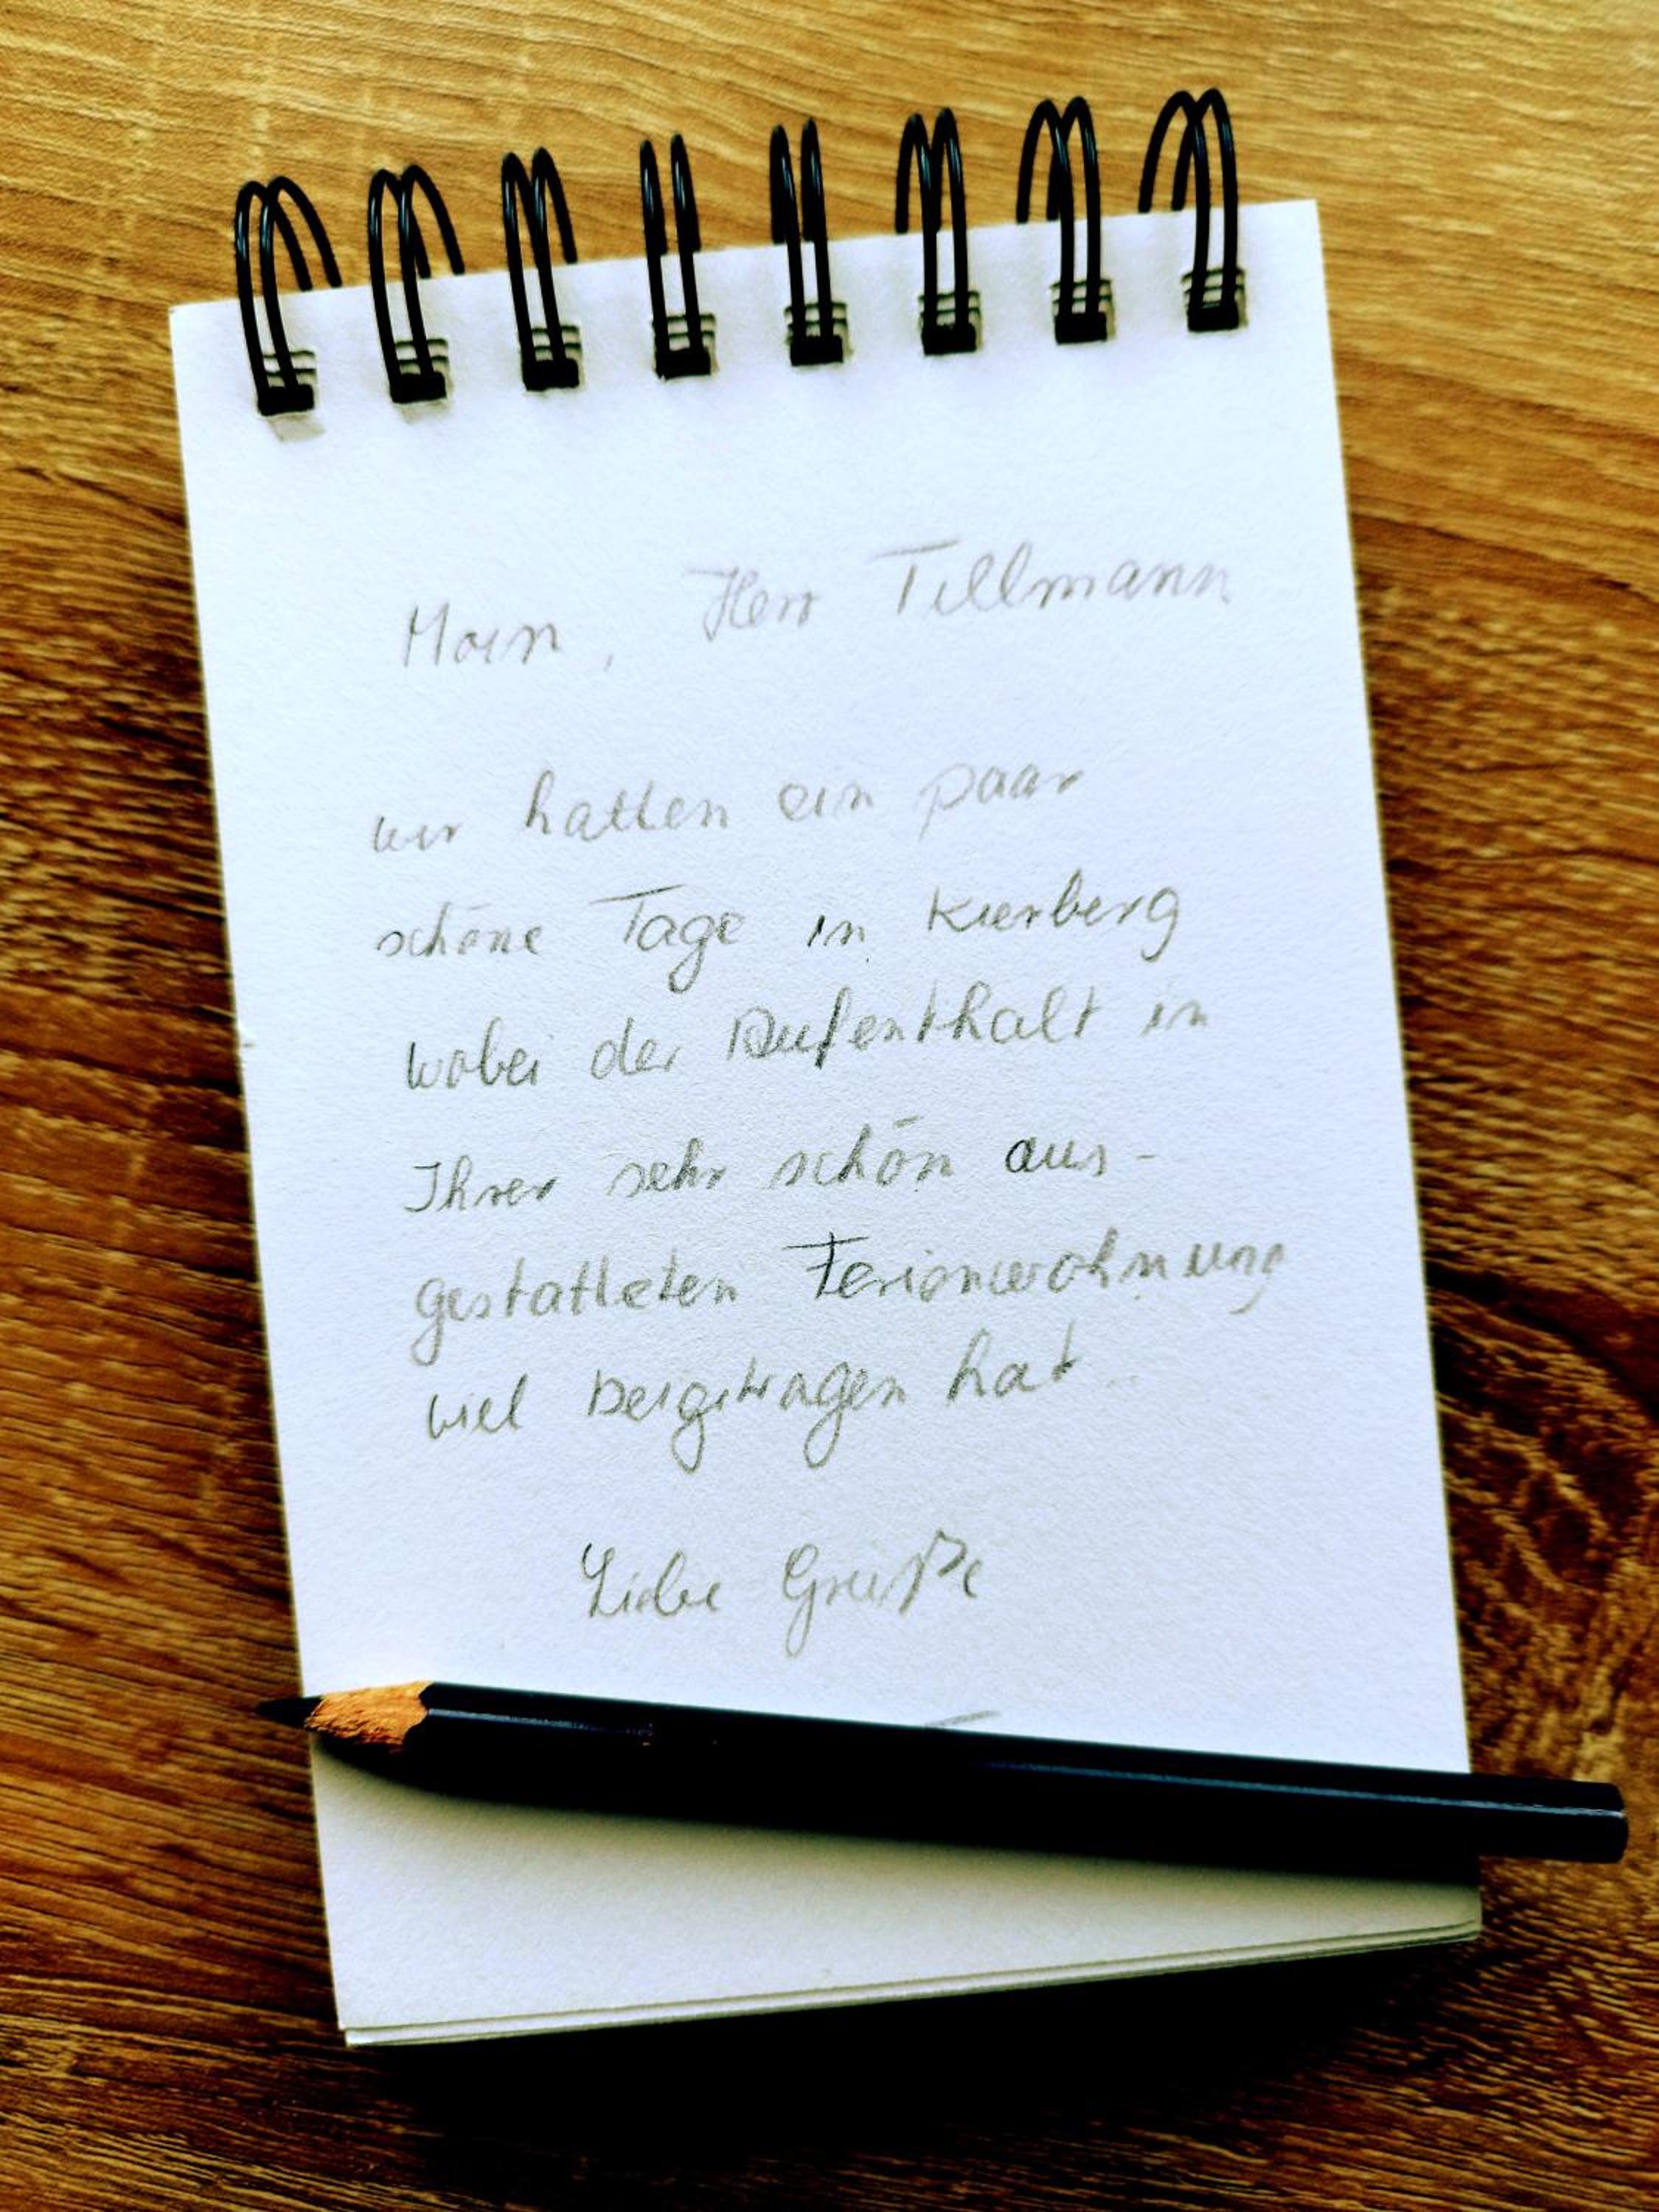 Moin, Herr Tillmann
wir hatten ein paar
schöne Tage in Kierberg
wobei der Aufenthalt in
Ihrer sehr schön aus-
gestatteten Ferienwohnung
viel beigetragen hat..
Liebe Grüße